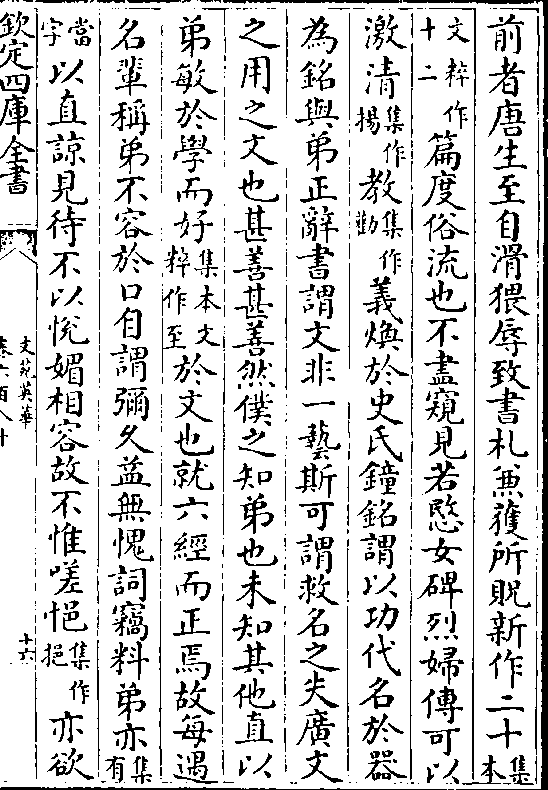 前者唐生至自滑猥辱致書札兼獲所貺新作二十集本
文粹作十二篇度俗流也不盡窺見若愍女碑烈婦傳可以
激清集作揚教集作勸義煥於史氏鐘銘謂以功代名於器
為銘與弟正辭書謂文非一藝斯可謂救名之失廣文
之用之文也甚善甚善然僕之知弟也未知其他直以
弟敏於學而好集本文粹作至於文也就六經而正焉故每遇
名輩稱弟不容於口自謂彌久益無愧詞竊料弟亦集有
當字以直諒見待不以悅媚相容故不惟嗟悒集作挹亦欲
欽定四庫全書
文苑英華
卷六百八十
十六